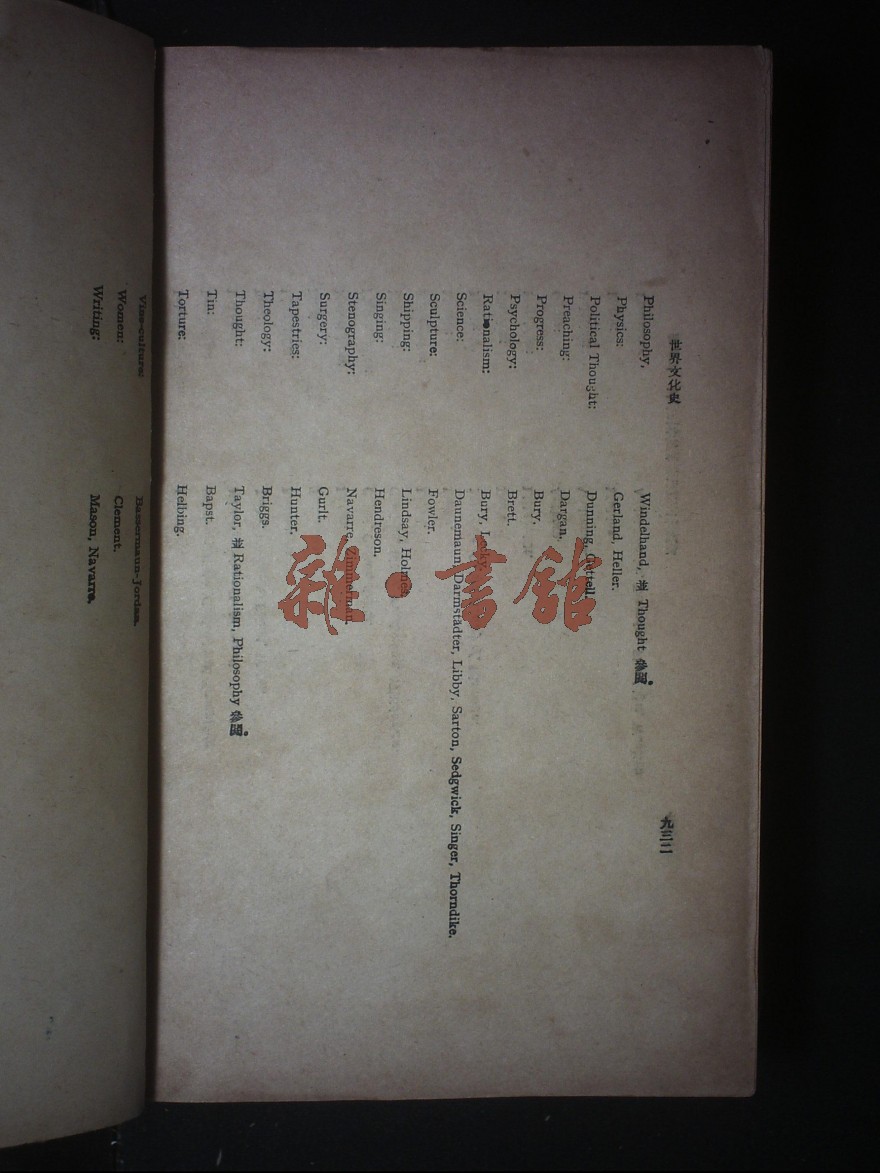 世界文化史
九三二
Philosophy, Windelhand, 與 Thought 條同。
Physics: Gerland, Heller.
Political Thought: Dunning, Gettell.
Preaching: Dargan.
Progress: Bury.
Psychology: Brett.
Rationalism: Bury, Lecky.
Science: Daunemaun, Darmstädter, Libby, Sarton, Sedgwick, Singer, Thorndike.
Sculpture: Fowler.
Shipping: Lindsay, Holmes.
Singing: Hendreson.
Stenography: Navarre, Zimmerman.
Surgery: Gurlt.
Tapestries: Hunter.
Theology: Briggs.
Thought: Taylor, Rationalism, Philosophy
Tin: Bapst.
Torture: Helbing.
Vine-culture: Bassermaun-Jordan.
Women: Clement.
Writing: Mason, Navarre.
雜·書館